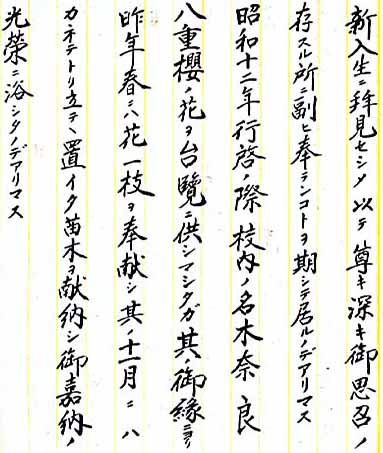 新入生ニ拜見セシメ以テ尊キ深キ御思召ノ
存スル所ニ副ヒ奉テンコトヲ期シテ居ルノデアリマス
昭和十二年行啓ノ際校内ノ名木奈良
八重櫻ノ花ヲ台覽ニ供シマシタガ其ノ御緣ニヨリ
昨年春ニハ花一枝ヲ奉献シ其ノ十一月ニハ
カネテトリ立テヽ置イタ苗木ヲ献納シ御嘉納ノ
光榮ニ浴シタノデアリマス